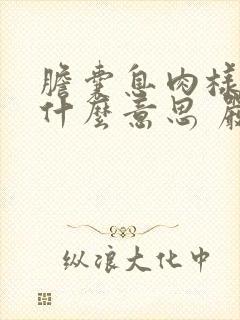 膽囊息肉樣
什麼意思 嚴
纵浪大化中